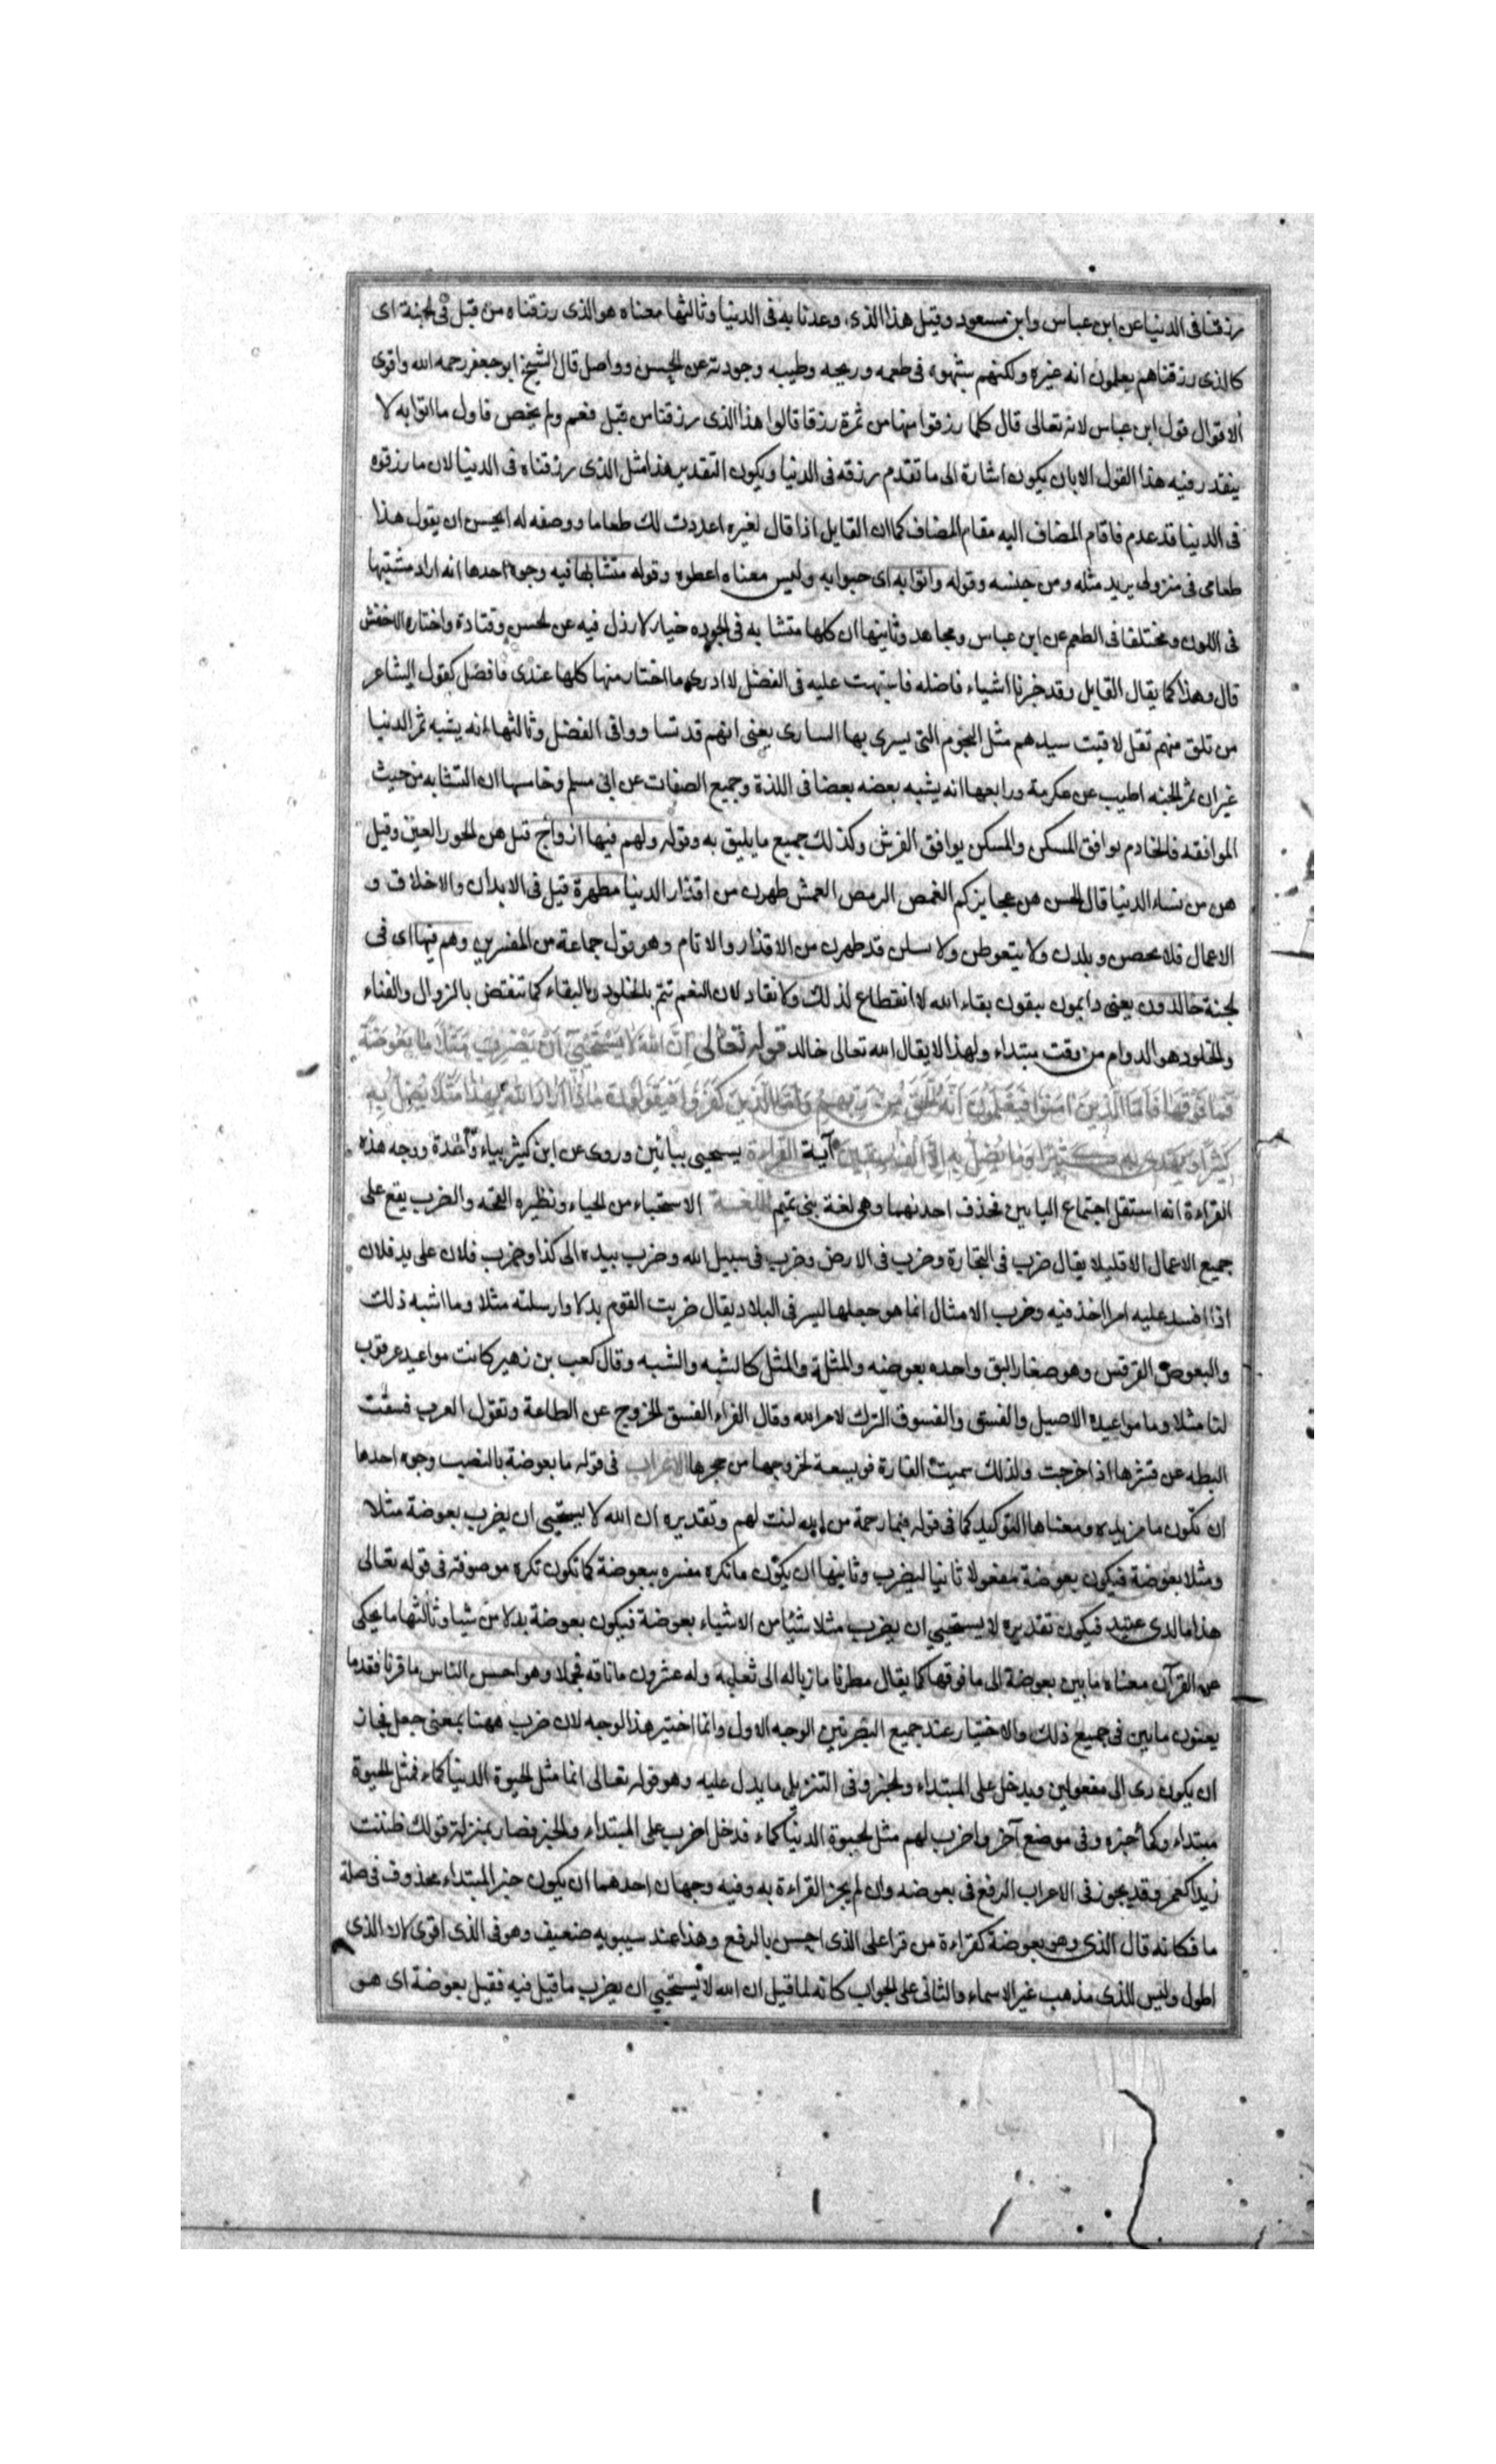 رزقنا فى الدنيا عن ابن عباس وابن مسعود وقيل هذا الذى وعدنا به فى الدنيا وثالثها معناه هو الذى رزقناه من قبل فى الجنة اى
كالذى رزقنا هم يعلمون انه غيره ولكنهم شبهوه فى طعمه وريحه وطيبه وجودته عن الحسن وواصل قال الشيخ ابو جعفر رحمه الله واقوى
الاقوال قول ابن عباس لانه تعالى قال كلما رزقوا منها من ثمرة رزقا قالوا هذا الذى رزقنا من قبل فعم ولم يخص فاول ما اتوا به لا
يتقدر فيه هذا القول الا بان يكون اشارة الى ما تقدم رزقه فى الدنيا ويكون التقدير هذا مثل الذى رزقناه فى الدنيا لان ما رزقوه
فى الدنيا قد عدم فاقام المضاف اليه مقام المضاف كما ان القايل اذا قال لغيره اعددت لك طعاما ووصفه له ايحسن ان يقول هذا
طعامى فى منزولى يريد مثله ومن جنسه وقوله واتوا به اى حبوا به وليس معناه اعطوه وقوله متشابها فيه وجوه احدها انه اراد مشتبها
فى اللون ومختلفا فى الطعم عن ابن عباس ومجاهد وثانيها ان كلها متشابه فى الجوده خيار لا رذل فيه عن الحسن وقتادة واختاره الاخفش
قال وهذا كما يقال القايل وقد خرنا اشياء فاضله فاشتهت عليه فى الفضل لا ادرى ما اختار منها كلها عندى فاضل كقول الشاعر
من تلق منهم تقل لاقيت سيدهم مثل النجوم التى يسرى بها السارى يعنى انهم قد تساووا فى الفضل وثالثها انه يشبه ثمر الدنيا
غير ان ثمر الجنه اطيب عن عكرمة ورابعها انه يشبه بعضه بعضا فى اللذة وجميع الصفات عن ابى مسلم وخامسها ان التشابه من حيث
الموافقه فالخادم يوافق المسكن والمسكن يوافق الفرش وكذلك جميع ما يليق به وقوله ولهم فيها ازواج قيل هن الحور العين وقيل
هن من نساء الدنيا قال الحسن هن عجايزكم الغمص الرمص العمش طهرن من اقذار الدنيا مطهرة قيل فى الابدان والاخلاق و
الاعمال فلا يحضن و يلدن ولا يتغوطن ولا يبلن قد طهرن من الاقذار والاثام وهو قول جماعة من المفسرين وهم فيها اى فى
الجنة خالدون يعنى دايمون يبقون ببقاء الله لا انقطاع لذلك ولا نفاد لان النعم تتم بالخلود والبقاء كما تنتقض بالزوال والفناء
والخلود هو الدوام من وقت مبتداء ولهذا لا يقال الله تعالى خالد قوله تعالى إن الله لا يستحيي أن يضرب مثلا ما بعوضة
فما فوقها فأما الذين آمنوا فيعلمون أنه الحق من ربهم وأما الذين كفروا فيقولون ماذا أراد الله بهذا مثلا يضل به
كثيرا ويهدي به كثيرا وما يضل به إلا الفاسقين آية القراءة يستحيى بيائين وروى عن ابن كثير بياء واحدة ووجه هذه
القراءة انه استثقل اجتماع اليايين فحذف احدهما وهى لغة بنى تميم اللغة الاستحياء من الحياء ونظيره القحه والضرب يقع على
جميع الاعمال الا قليلا يقال ضرب فى التجارة وضرب فى الارض وضرب فى سبيل الله وضرب بيده الى كذا وضرب فلان على يد فلان
اذا افسد عليه امرا اخذ فيه وضرب الامثال انما هو جعلها ليسر فى البلاد يقال ضربت القوم بدلا وارسلته مثلا وما اشبه ذلك
والبعوض القرقس وهو صغار البق واحده بعوضه والمثلة والمثل كالشبه والشبه وقال كعب بن زهير كانت مواعيد عرقوب
لنا مثلا وما مواعيده الاصيل والفسق والفسوق الترك لامر الله وقال الفراء الفسق الخروج عن الطاعة وتقول العرب فسقت
البطه عن قشرها اذا خرجت ولذلك سميت الفارة فويسقة لخروجها من جحرها الاعراب فى قوله ما بعوضة بالنصب وجوه احدها
ان تكون ما مزيده ومعناها التوكيد كما فى قوله فبما رحمة من الله لنت لهم وتقديره ان الله لا يستحيى ان يضرب بعوضة مثلا
ومثلا بعوضة فيكون بعوضة مفعولا ثانيا ليضرب وثانيها ان يكون ما نكره مفسره ببعوضة كما تكون نكره موصوفه فى قوله تعالى
هذا ما لدى عتيد فيكون تقديره لا يستحيى ان يضرب مثلا شيئا من الاشياء بعوضة فيكون بعوضة بدلا من شيا وثالثها ما يحكى
عن القرآن معناه ما بين بعوضة الى ما فوقها كما يقال مطرنا ما زباله الى ثعلبيه وله عشرون ما ناقه فجملا وهو احسن الناس ما قرنا فقدما
يعنون ما بين فى جميع ذلك والاختيار عند جميع البصريين الوجه الاول وانما اختير هذا الوجه لان ضرب ههنا بمعنى جعل فجاز
ان يكون دى الى مفعولين ويدخل على المبتداء والخبر وفى التنزيل ما يدل عليه وهو قوله تعالى انما مثل الحيوة الدنيا كماء فمثل الحيوة
مبتداء وكماء خبره وفى موضع آخر واضرب لهم مثل الحيوة الدنيا كماء فدخل اضرب على المبتداء والخبر فصار بمنزلة قولك ظننت
زيدا كعمرو وقد يجوز فى الاعراب الرفع فى بعوضه وان لم يجز القراءة به وفيه وجهان احدهما ان يكون خبر المبتداء محذوف فى صلة
ما فكانه قال الذى وهو بعوضة كقراءة من قرا على الذى احسن بالرفع وهذا عند سيبويه ضعيف وهو فى الذى اقوى لان الذى
اطول وليس للذى مذهب غير الاسماء والثانى على الجواب كانه لما قيل ان الله لا يستحيي ان يضرب ما قيل فيه فقيل بعوضة اى هو